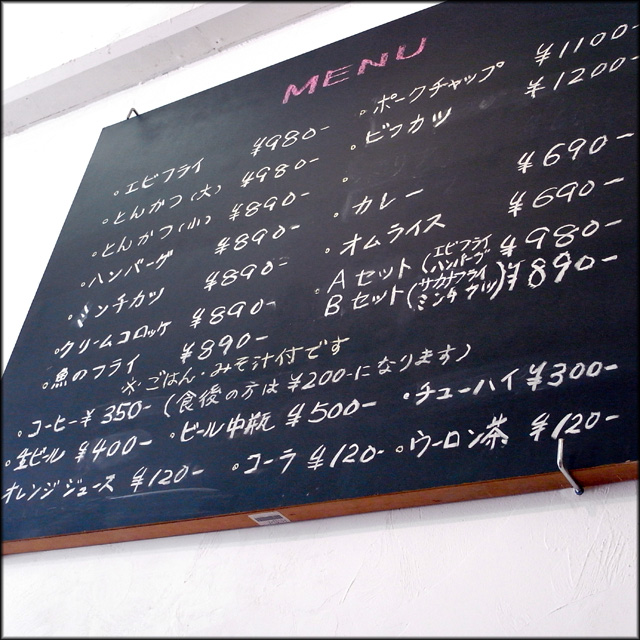 MENU
・エビフライ ¥980-
・とんかつ(大) ¥980-
・とんかつ(小) ¥890-
・ハンバーグ ¥890-
ンチカツ ¥890-
・クリームコロッケ ¥890-
・魚のフライ ¥890-
・ポークチャップ ¥1100-
・ビフカツ ¥1200-
・
・カレー ¥690-
・オムライス ¥690-
・Aセット(エビフライ ハンバーグ) ¥980-
Bセット(サカナフライ ミンチカツ) ¥890-
※ごはん・みそ汁付です
・コーヒー ¥350-(食後の方は¥200-になります)
・生ビール ¥400- ・ビール中瓶 ¥500- ・チューハイ ¥300-
オレンジジュース ¥120- ・コーラ ¥120- ・ウーロン茶 ¥120-